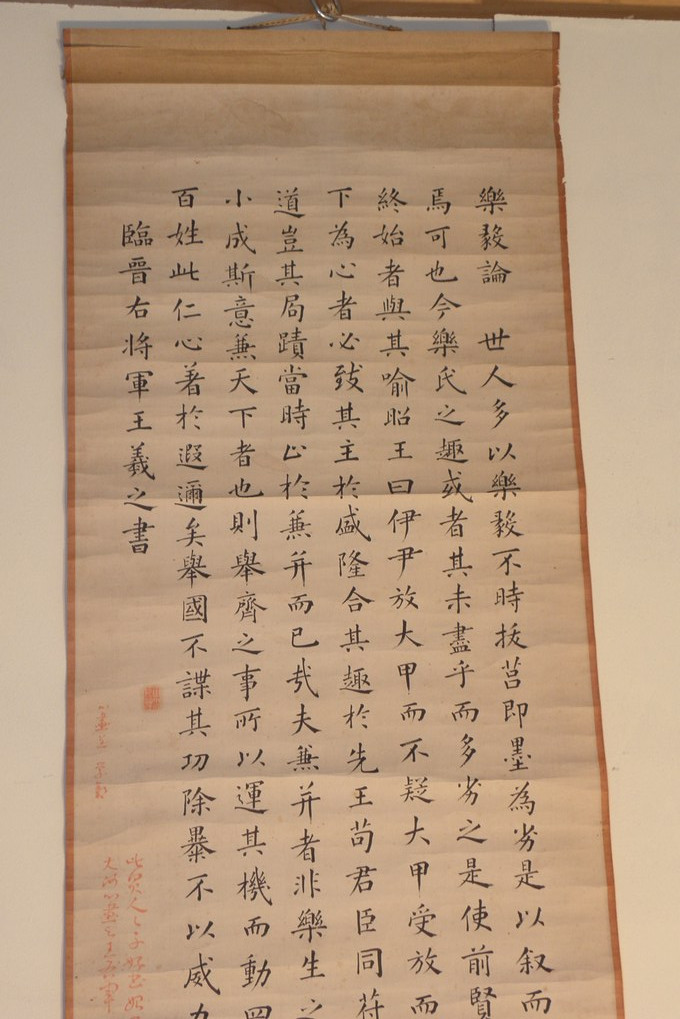 樂毅論 世人多以樂毅不時拔莒即墨為劣是以叙而
焉可也今樂氏之趣或者其未盡乎而多劣之是使前賢
終始者與其喻昭王曰伊尹放大甲而不疑大甲受放而
下為心者必致其主於盛隆合其趣於先王苟君臣同苻
道豈其局蹟當時止於蒹并而已㢤夫蒹并者非樂生之
小成斯意蒹天下者也則舉齊之事所以運其機而動
百姓此仁心著於遐邇矣舉國不謀其功除暴不以威力
臨晋右将軍王羲之書